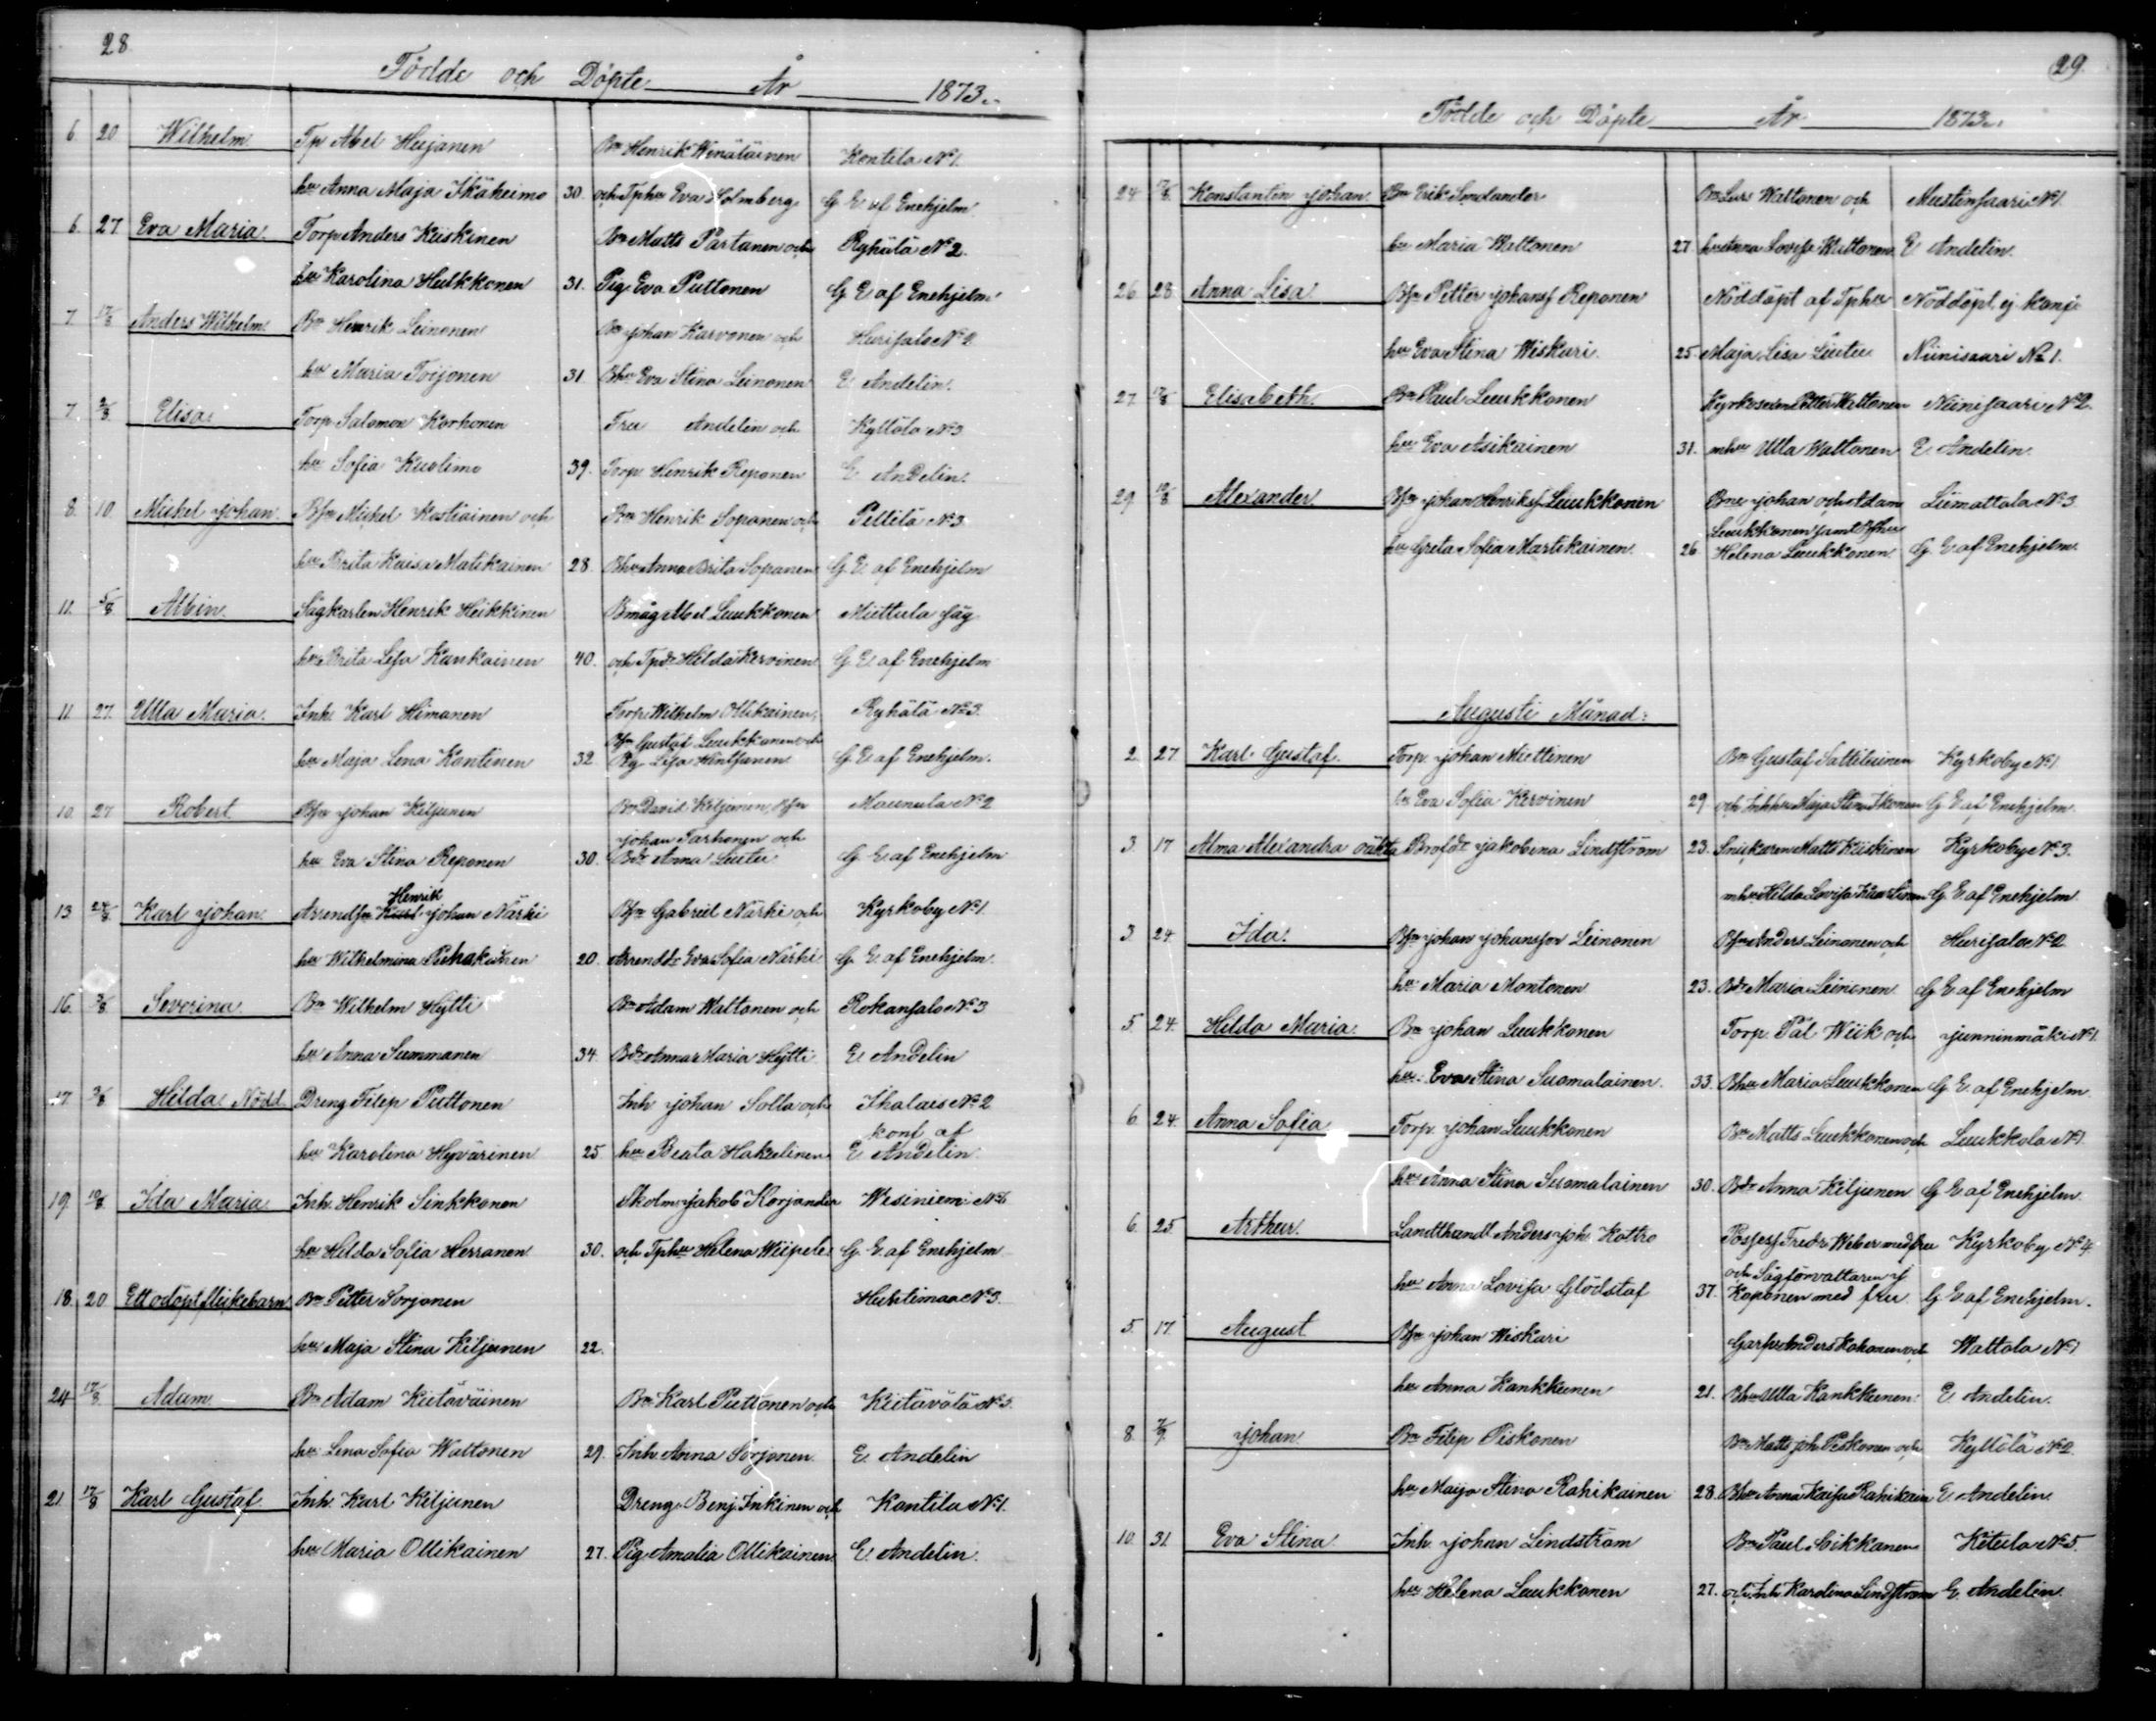 28
Födde och Döpte År 1873.
6. 20 Wilhelm Tp Abel Heijanen Bn Henrik Winäläinen Kontila No 1.
hu Anna Maja Ikäheimo 30. och Tphu Eva Holmberg G. E. af Enehjelm
6. 27 Eva Maria. Torp Anders Kiiskinen Bn Matts Partanen och Ryhälä No 2.
hu Karolina Hulkkonen 31. Pig Eva Puttonen G. E. af Enehjelm
7. 17/8 Anders Wilhelm Bn Henrik Leinonen Bn Johan Karvonen och Hurisalo No 2
hu Maria Toijonen 31 Bhu Eva Stina Leinonen E. Andelin.
7. 2/8 Elisa Torp Salomon Korhonen Fru Andelin och Kyttölä No 3
hu Sofia Kuolimo 39. Torp. Henrik Reponen E. Andelin.
8. 10 Michel Johan Bsn Michel Kostiainen och Bn Henrik Soponen och Pellilä No 3
hu Brita Kaisa Matikainen 28. Bhu Anna Brita Soponen G. E. af Enehjelm
11. 5/8 Albin. Sågkarlen Henrik Heikkinen Bmåg Abel Luukkonen Miettula såg
hu Brita Lisa Kankainen 40. och Tpdr Hilda Kervinen G. E. af Enehjelm
11. 27. Ulla Maria. Inh. Karl Himanen Torp. Wilhelm Ollikainen, Ryhälä No 3.
Bsn Gustaf Luukkonen och
hu Maja Lena Kontinen 32 Pig Lisa Hintsanen G. E. af Enehjelm.
10. 27 Robert Bsn Johan Kiljunen Bn David Kiljunen, Bsn Maunula No 2
Johan Tarhonen och
hu Eva Stina Reponen 30. Bdr Anna Liutu G. E. af Enehjelm
Henrik
13 24/8 Karl Johan. Arrendsn Karl Johan Närhi Bsn Gabriel Närhi och Kyrkoby No 1.
hu Wilhelmina Puhakainen 20. Arrenddr Eva Sofia Närhi G. E. af Enehjelm.
16. 3/8 Severina Bn Wilhelm Hytti Bn Adam Waltonen och Rokansalo No 3
hu Anna Summanen 34. Bdr Anna Maria Hytti E. Andelin
17. 3/8 Hilda Nödd Dreng Filip Puttonen Inh Johan Solla och Ihalais No 2
konf af
hu Karolina Hyvärinen 25 hu Beata Hakulinen E. Andelin.
19. 10/8 Ida Maria Inh. Henrik Sinkkonen Skolm. Jakob Korjander Wesiniemi No 2
hu Hilda Sofia Herranen 30. och Tphu Helena Wiipele G. E. af Enehjelm
18. 20 Ett odöpt flickebarn Bn Petter Sorjonen Huhtimaa No 3.
hu Maja Stina Kiljunen 22.
24 17/8 Adam Bn Adam Kietäväinen Bn Karl Puttonen och Kietävälä No 3.
hu Lena Sofia Waltonen 29. Inh. Anna Sorjonen E. Andelin
21. 17/8 Karl Gustaf Inh. Karl Kiljunen Dreng Benj. Inkinen och Kontila No 1.
hu Maria Ollikainen 27. Pig Amalia Ollikainen E. Andelin.
29.
Födde och Döpte År 1873.
24 Konstantin Johan Bn Erik Smolander Bn Lars Waltonen och Mustinsaari No 1.
hu Maria Waltonen 27. hu Anna Lovisa Kuttonen E. Andelin.
26. 28. Anna Lisa Bsn Petter Johanss Reponen Nöddöpt af Tphu Nöddöpt, ej konf.
hu Eva Stina Wiskari. 25. Maja Lisa Liutu Niinisaari No 1.
27. 17/8 Elisabeth. Bn Paul Luukkonen Kyrkovaln Petter Waltonen Niinisaari No 2.
hu Eva Asikainen 31. mhu Ulla Waltonen E. Andelin.
29. 10/8 Alexander. Bsn Johan Henrikss Luukkonen Bne Johan och Adam Liimattala No 3
Luukkonen samt Bshu
hu Greta Sofia Martikainen. 26. Helena Luukkonen G. E. af Enehjelm.
Augusti Månad:
2. 27. Karl Gustaf. Torp. Johan Miettinen Bn Gustaf Sattilainen Kyrkoby No 1
hu Eva Sofia Kervinen 29. och Inhhu Maja Stina Ikonen G. E. af Enehjelm.
3. 17 Alma Alexandra oäkta Profdr Jakobina Lindström 23. Snickaren Matts Kiiskinen Kyrkoby No 3.
mhu Hilda Lovisa G. E. af Enehjelm.
3. 24. Ida. Bsn Johan Johansson Leinonen Bsn Anders Leinonen och Hurisalo No 2
hu Maria Montonen 23. Bdr Maria Leinonen G. E. af Enehjelm
5. 24. Hilda Maria. Bn Johan Luukkonen Torp. Pål Wiik och Junninmäki No 1.
hu Eva Stina Suomalainen. 33. Bhu Maria Luukkonen G. E. af Enehjelm.
6. 24. Anna Sofia Torp Johan Luukkonen Bn Matts Luukkonen och Luukkola No 1.
hu Anna Stina Suomalainen 30. Bdr Anna Kiljunen G. E. af Enehjelm.
6. 25. Arthur. Landthandl Anders Joh. Kottro Possess Fredr. Weber med fru Kyrkoby No 4.
och Sågförvaltaren J
hu Anna Lovisa Glödstaf 37. Koponen med fru G. E. af Enehjelm.
5. 17. August Bsn Johan Wiskari Garfv Anders Kokonen och Wattola No 1
hu Anna Kankkunen 21. Bhu Ulla Kankkunen E. Andelin.
8. Johan. Bn Filip Piskonen Bn Matts Joh. Piskonen och Kyttölä No 2.
hu Maija Stina Rahikainen 28. Bhu Anna Kaisa Rahikain E. Andelin.
10. 31. Eva Stina Inh. Johan Lindström Bn Paul Sikkanen Kitula No 5.
hu Helena Luukkonen 27. och Inh Karolina Lindström E. Andelin.